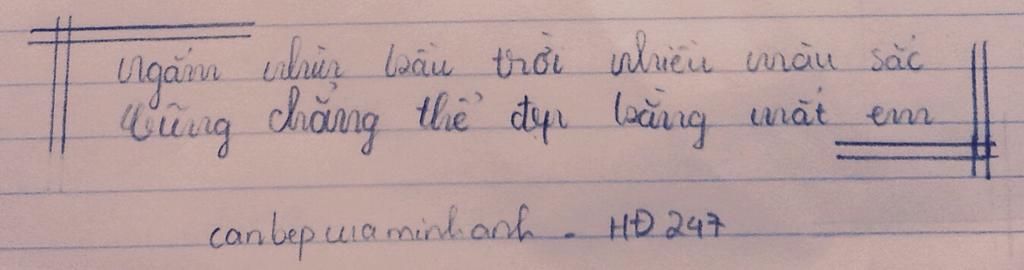 ngắm nhìn bầu trời nhiều màu sắc
cũng chẳng thể đẹp bằng mắt em
canbepcuaminhanh - HĐ 247